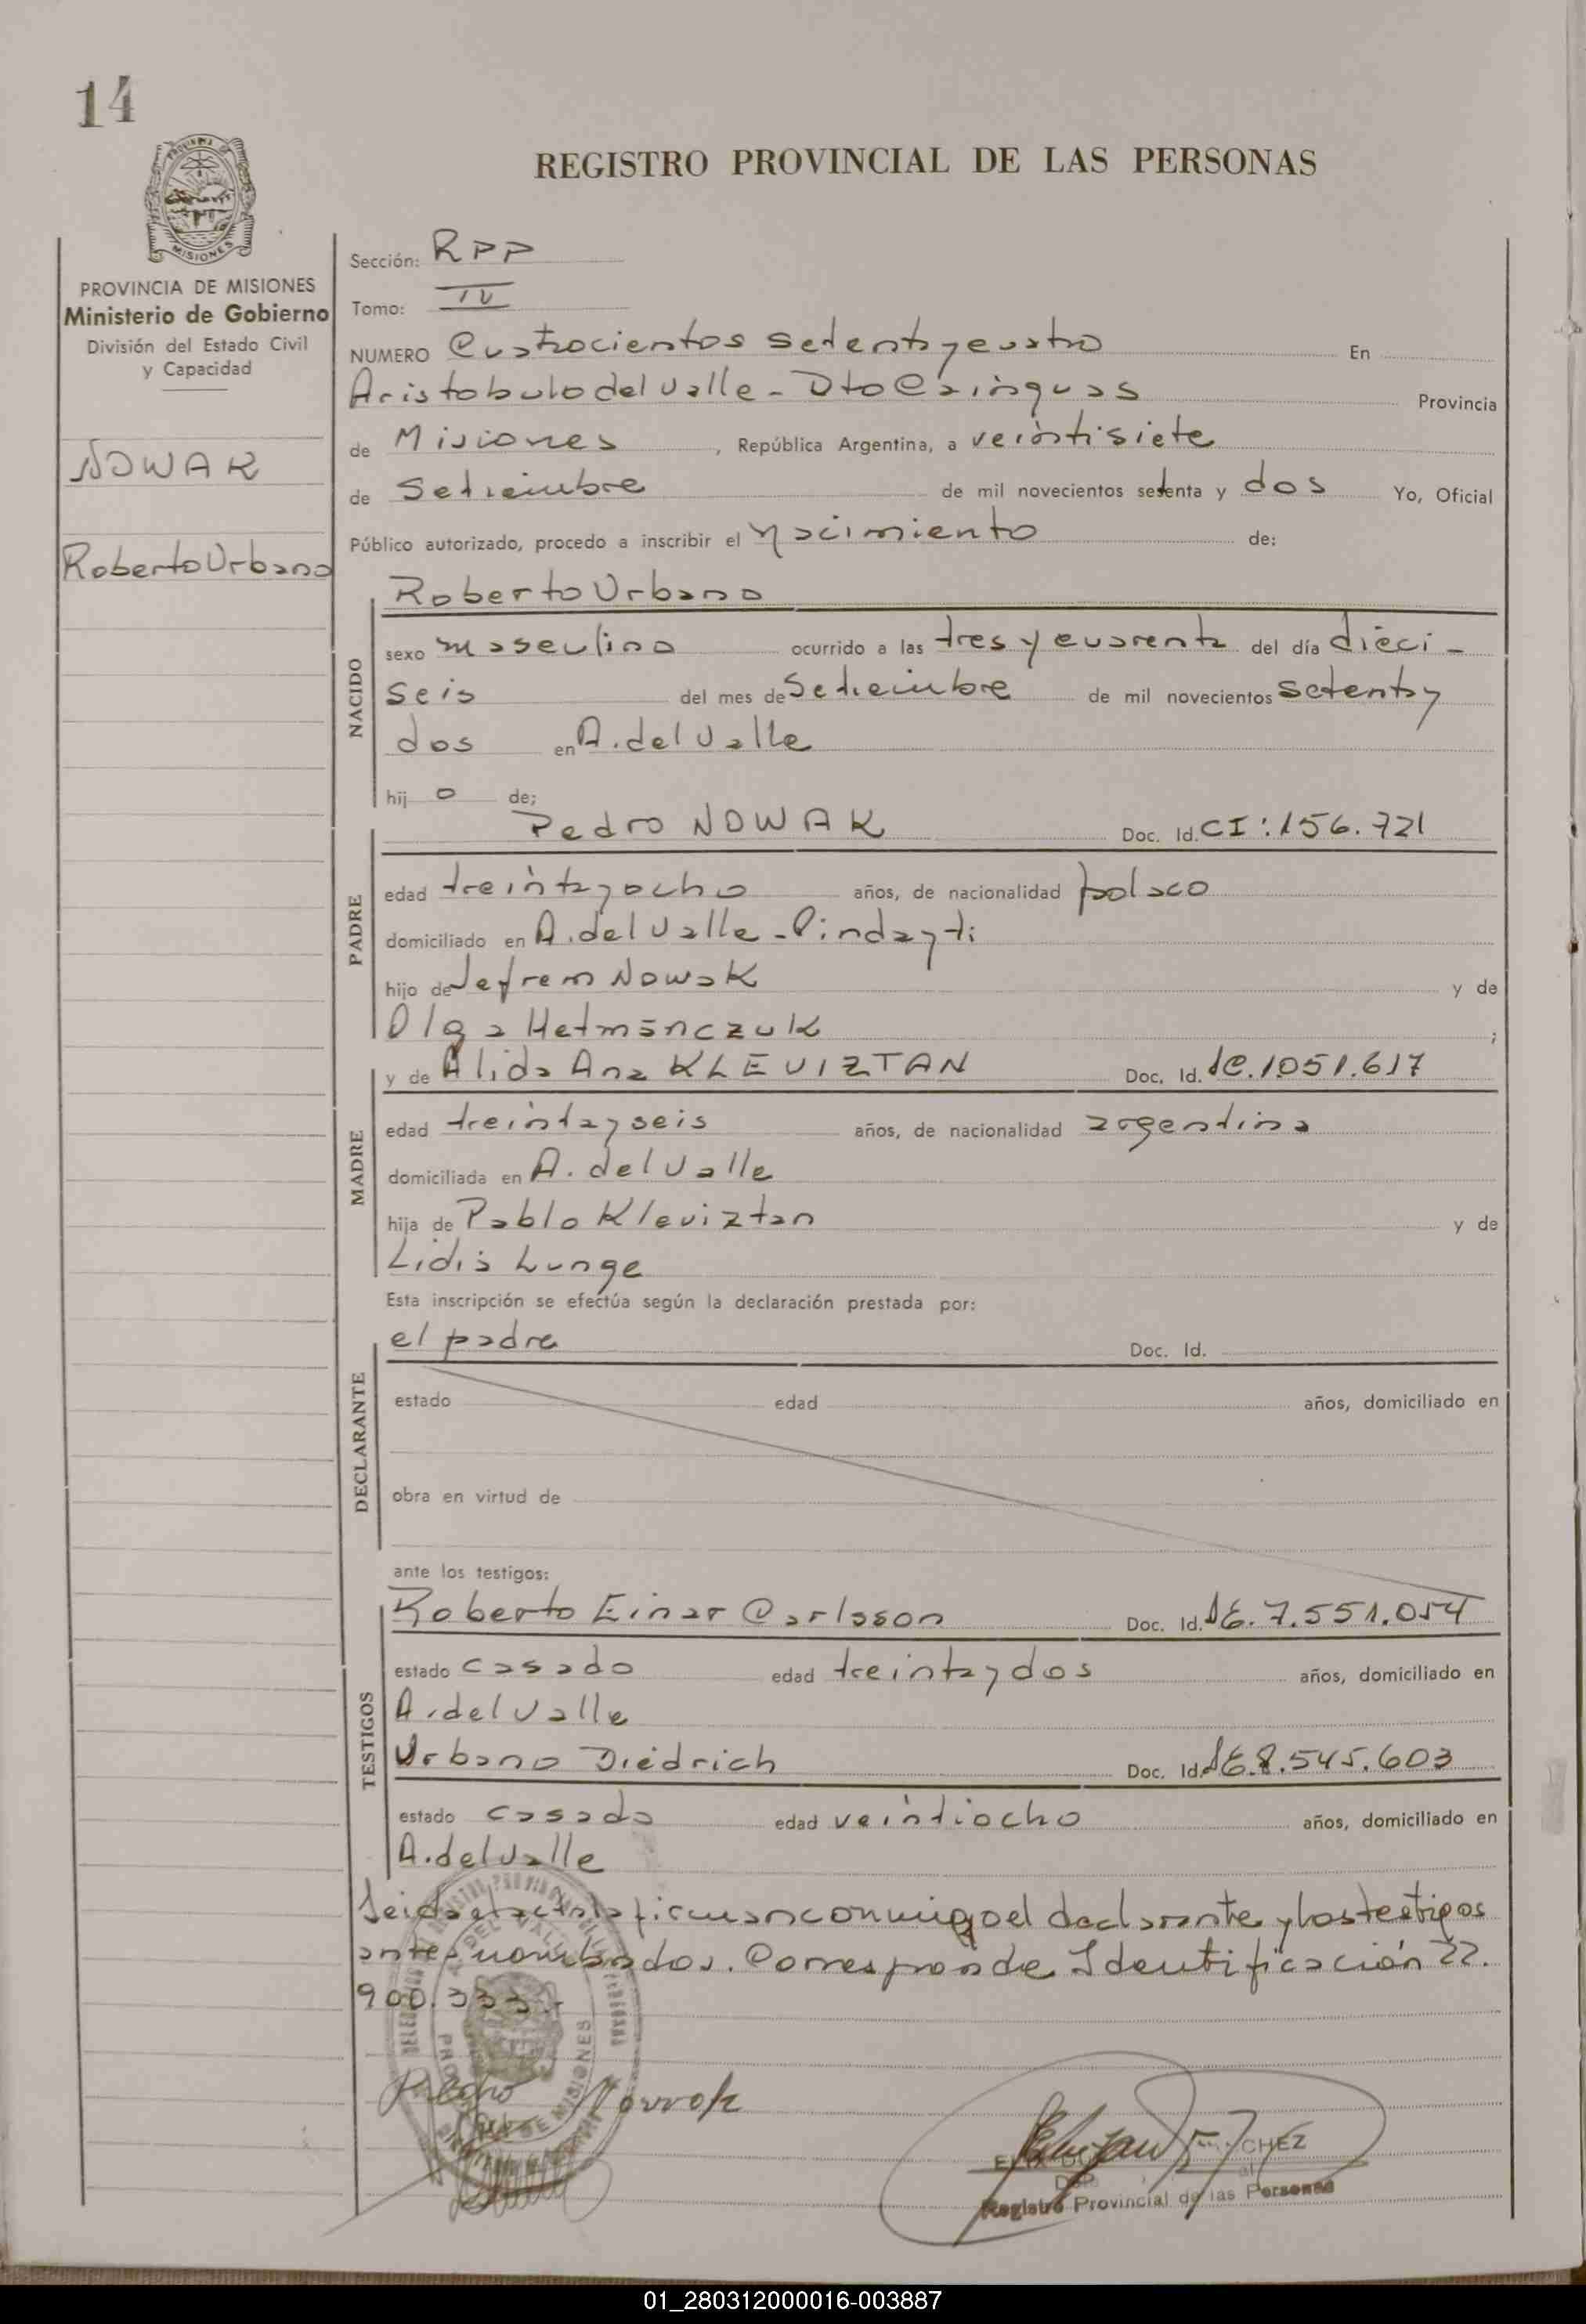 14
PROVINCIA DE MISIONES
Ministerio de Gobierno
División del Estado Civil
y Capacidad
NOWAK
Roberto Urbano
REGISTRO PROVINCIAL DE LAS PERSONAS
Sección: RPP
Tomo: IV
NUMERO Cuatrocientos setenta y cuatro En
Aristobulo del Valle - Dto Cainguas Provincia
de Misiones, República Argentina, a veintisiete
de Setiembre de mil novecientos setenta y dos Yo, Oficial
Público autorizado, procedo a inscribir el Nacimiento de:
NACIDO
Roberto Urbano
sexo masculino ocurrido a las tres y cuarenta del día dieci-
seis del mes de Setiembre de mil novecientos setenta y
dos en A. del Valle
hij o de;
PADRE
Pedro NOWAK Doc. Id. CI: 156.721
edad treinta y ocho años, de nacionalidad polaco
domiciliado en A. del Valle - Pindayti
hijo de Jefrem Nowak y de
Olga Hetmanczuk ;
MADRE
y de Alida Ana KLEVIZTAN Doc. Id. LC. 1.051.617
edad treinta y seis años, de nacionalidad argentina
domiciliada en A. del Valle
hija de Pablo Kleviztan y de
Lidia Lunge
Esta inscripción se efectúa según la declaración prestada por:
DECLARANTE
el padre Doc. Id.
estado edad años, domiciliado en
obra en virtud de
ante los testigos:
TESTIGOS
Roberto Einar Carlsson Doc. Id. LE. 7.551.054
estado casado edad treinta y dos años, domiciliado en
A. del Valle
Urbano Diedrich Doc. Id. LE. 8.545.603
estado casado edad veintiocho años, domiciliado en
A. del Valle
Leida el acta la firman conmigo el declarante y los testigos
antes nombrados. Corresponde Identificación 22.
900.333.-
Pedro Nowak
CHEZ
Registro Provincial de las Personas
01_280312000016-003887